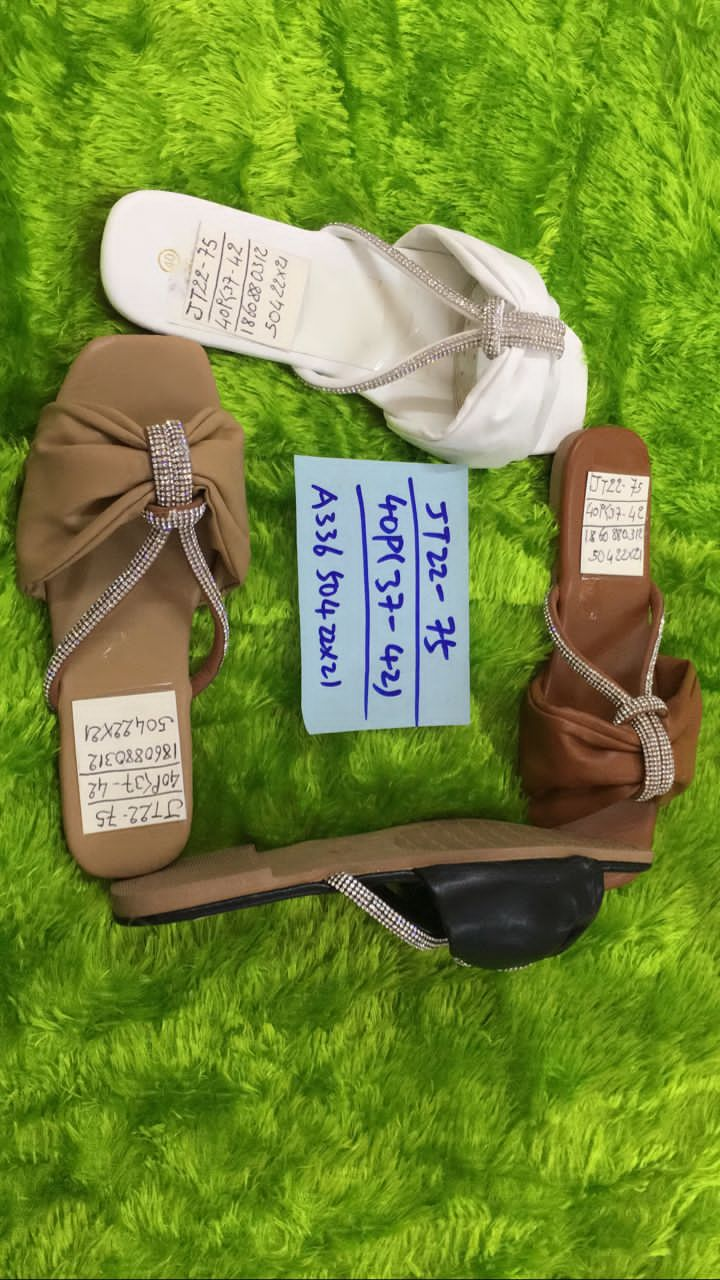 JT22-75
40P(37-42
1860880312
50422x21
40
JT22-75
40P(37-42)
A336 50422x21
JT22-75
40P(37-42
1860880312
50422x21
JT22-75
40P(37-42
1860880312
50422X21